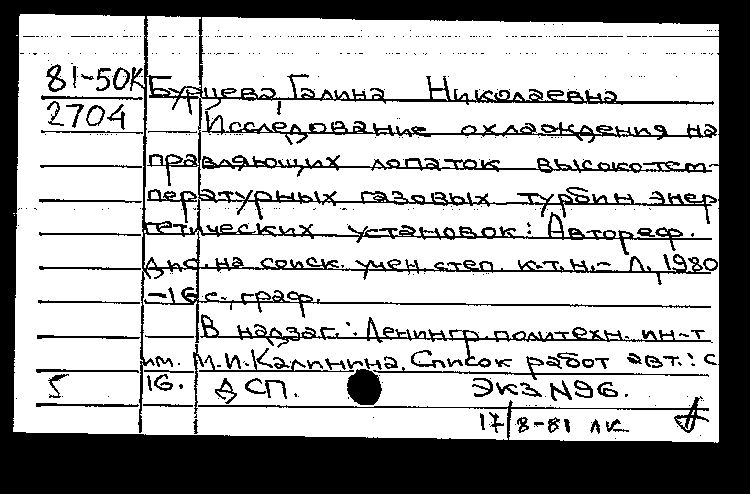 81-50к Бурцева, Галина Николаевна
2704 Исследование охлаждения на
правляющих лопаток высокотем-
пературных газовых турбин энер
гетических установок: Автореф.
дис. на соиск. учен. степ. к.т.н.- Л., 1980
-16 с., граф.
В надзаг.: Ленингр. политехн. ин-т
им. М.И.Калинина. Список работ авт.: с
5 16. ДСП. Экз N96.
17/8-81 лк